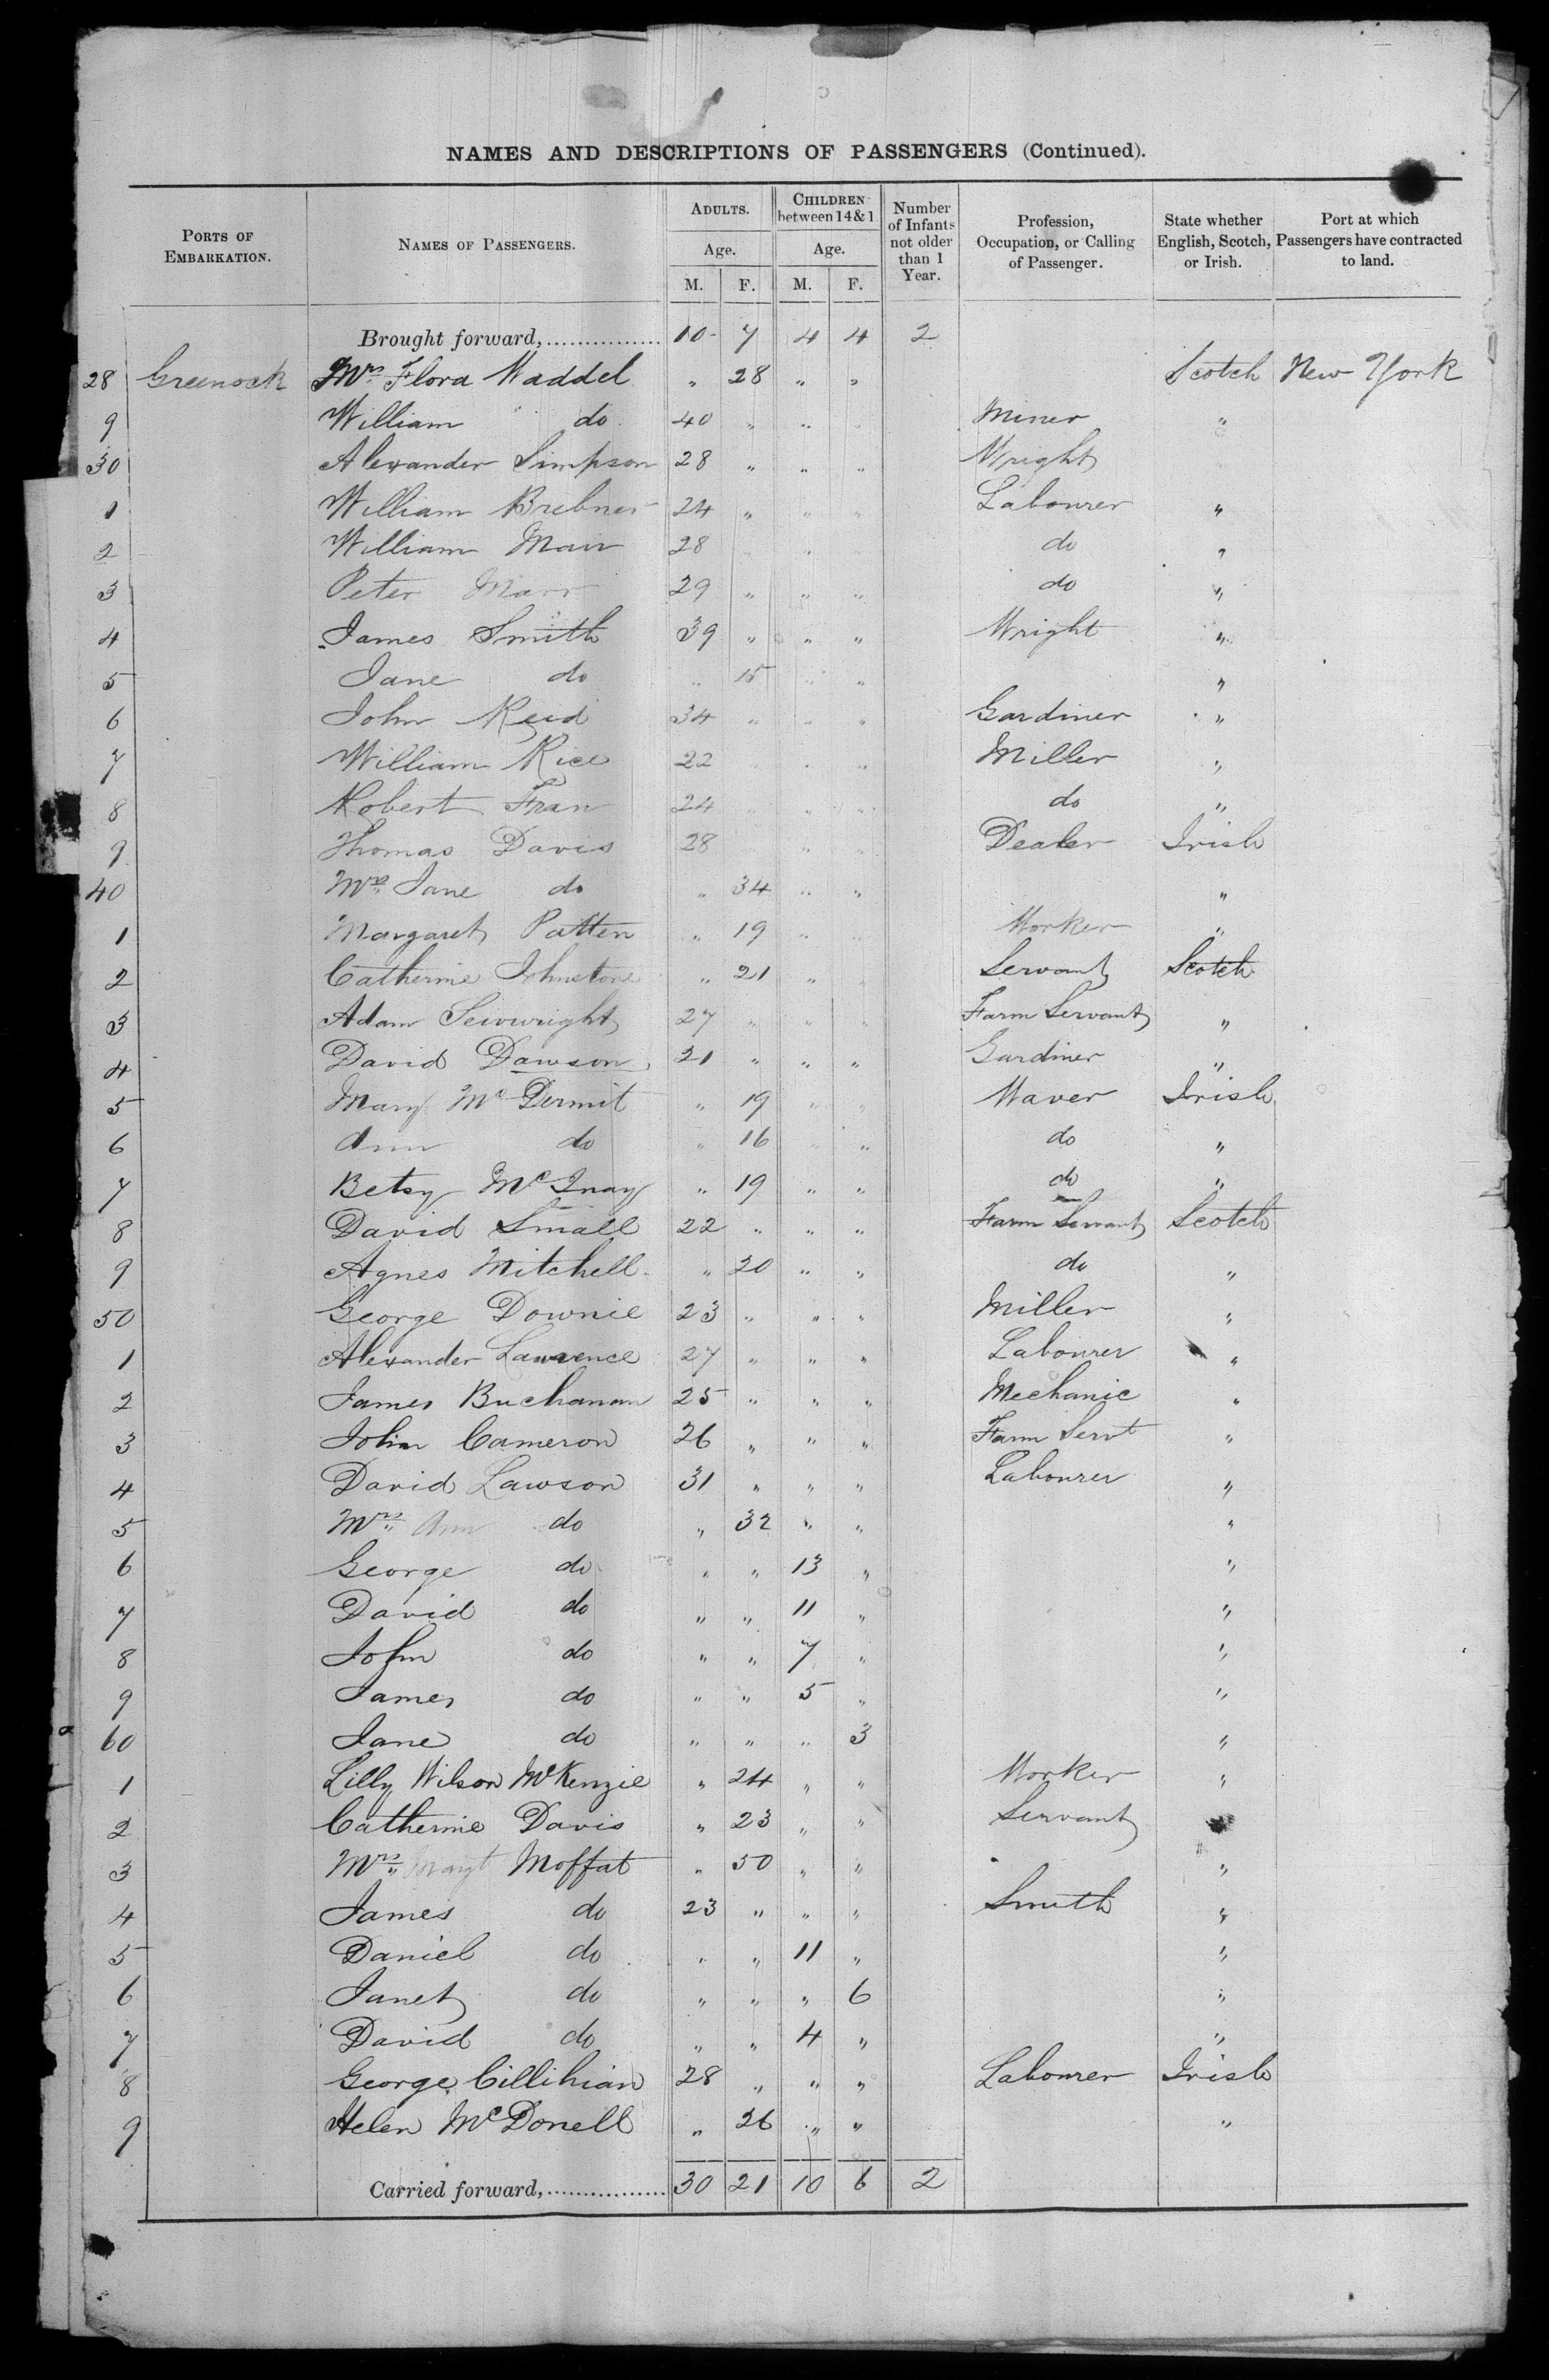 NAMES AND DESCRIPTIONS OF PASSENGERS (Continued).
PORTS OF EMBARKATION. NAMES OF PASSENGERS. ADULTS. Age. M. F. CHILDREN between 14 & 1 Age. M. F. Number of Infants not older than 1 Year. Profession, Occupation, or Calling of Passenger. State whether English, Scotch, or Irish. Port at which Passengers have contracted to land.
Brought forward,................ 10 7 4 4 2
28 Greenock Mrs Flora Waddel " 28 " " Scotch New York
9 William do 40 " " " Miner "
30 Alexander Simpson 28 " " " Wright
1 William Brebner 24 " " " Labourer "
2 William Marr 28 " " do "
3 Peter Marr 29 " " " do "
4 James Smith 39 " " " Wright "
5 Jane do " 15 " " "
6 John Reid 34 " " " Gardiner "
7 William Rice 22 " " " Miller "
8 Robert Fran 24 " " " do "
9 Thomas Davis 28 " " Dealer Irish
40 Mrs Jane do " 34 " " "
1 Margaret Patten " 19 " Worker "
2 Catherine Johnstone " 21 " " Servant Scotch
3 Adam Seivwright 27 " " " Farm Servant "
4 David Dawson 21 " " " Gardiner "
5 Mary McDermit " 19 " " Waver Irish
6 Ann do " 16 " " do "
7 Betsy McInay " 19 " " do "
8 David Small 22 " " " Farm Servant Scotch
9 Agnes Mitchell " 20 " " do "
50 George Downie 23 " " " Miller "
1 Alexander Lawrence 27 " " " Labourer "
2 James Buchanan 25 " " " Mechanic "
3 John Cameron 26 " " " Farm Servt "
4 David Lawson 31 " " " Labourer "
5 Mrs Ann do " 32 " " "
6 George do " " 13 " "
7 David do " " 11 " "
8 John do " " 7 " "
9 James do " " 5 " "
60 Jane do " " " 3 "
1 Lilly Wilson McKenzie " 24 " " Worker "
2 Catherine Davis " 23 " " Servant "
3 Mrs Margt Moffat " 50 " " "
4 James do 23 " " " Smith "
5 Daniel do " " 11 " "
6 Janet do " " " 6 "
7 David do " " 4 " "
8 George Cillihian 28 " " " Labourer Irish
9 Helen McDonell " 26 " " "
Carried forward,................ 30 21 10 6 2